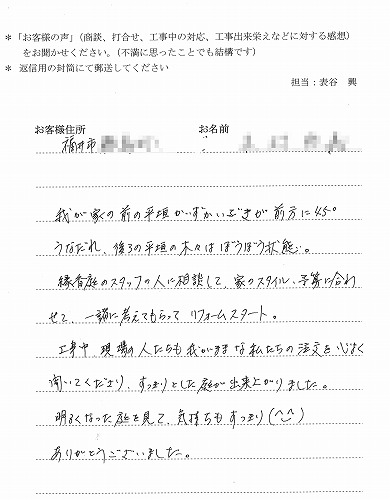 ＊「お客様の声」（商談、打合せ、工事中の対応、工事出来栄えなどに対する感想）
をお聞かせください。（不満に思ったことでも結構です）
＊ 返信用の封筒にて郵送してください
担当：表谷　興
お客様住所　お名前
福井市
我が家の前の平垣かいずかいぶきが前方に45°
うなだれ、後ろの平垣の木々はぼうぼう状態…。
縁香庭のスタッフの人に相談して、家のスタイル、予算に合わ
せて、一諸に考えてもらって リフォームスタート。
工事中、現場の人たちも我がままな私たちの注文を心よく
聞いてくださり、すっきりとした庭が出来上がりました。
明るくなった庭を見て、気持ちもすっきり(^^)
ありがとうございました。